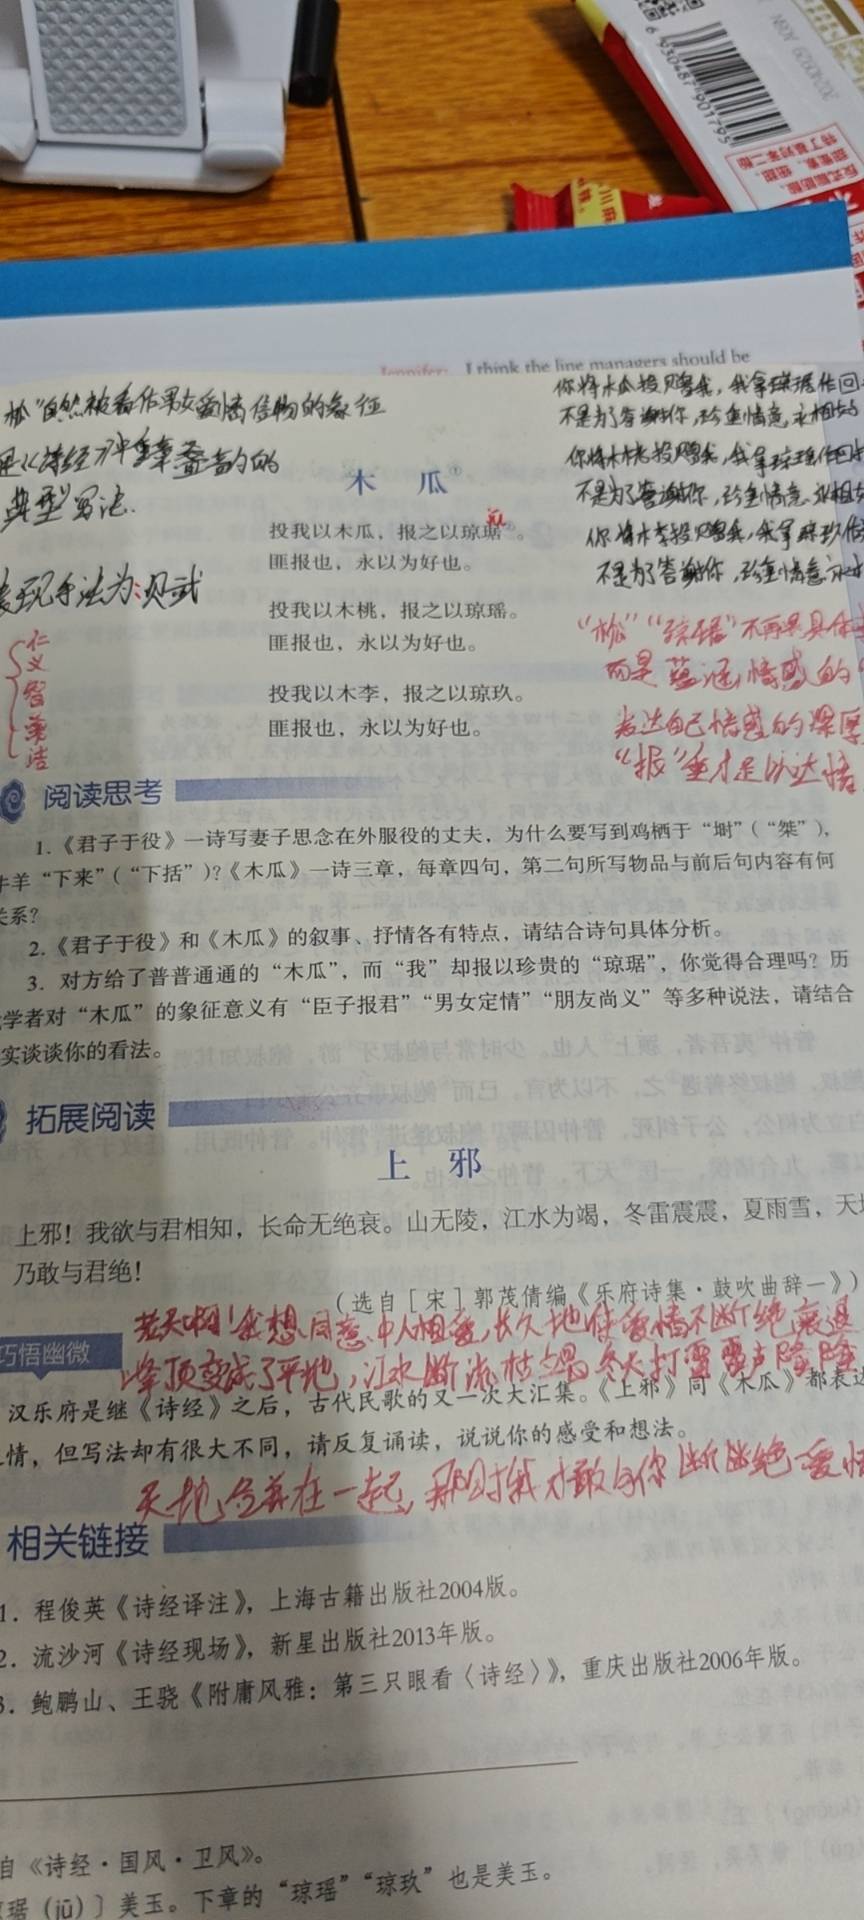 6930487901795
20240929
Jennifer: I think the line managers should be
"自然被看作男女爱情信物的象征
是《诗经》中重章叠韵的
典型写法.
表现手法为:赋
仁
义
智
美
洁
你将木瓜投赠我，我拿琼琚作回
不是为了答谢你，珍重情意永相好
你将木桃投赠我，我拿琼瑶作回
不是为了答谢你，珍重情意永相
你将木李投赠我，我拿琼玖作
不是为了答谢你，珍重情意永
木 瓜①
jū
投我以木瓜，报之以琼琚②。
匪报也，永以为好也。
投我以木桃，报之以琼瑶。
匪报也，永以为好也。
投我以木李，报之以琼玖。
匪报也，永以为好也。
"琼琚"不再是具体
而是蕴涵情感的
表达自己情感的深厚
"报"
阅读思考
1.《君子于役》一诗写妻子思念在外服役的丈夫，为什么要写到鸡栖于“埘”（“桀”），
牛羊“下来”（“下括”）?《木瓜》一诗三章，每章四句，第二句所写物品与前后句内容有何
关系?
2.《君子于役》和《木瓜》的叙事、抒情各有特点，请结合诗句具体分析。
3. 对方给了普普通通的“木瓜”，而“我”却报以珍贵的“琼琚”，你觉得合理吗？历
学者对“木瓜”的象征意义有“臣子报君”“男女定情”“朋友尚义”等多种说法，请结合
实谈谈你的看法。
拓展阅读
上 邪
上邪！我欲与君相知，长命无绝衰。山无陵，江水为竭，冬雷震震，夏雨雪，天地
乃敢与君绝！
（选自［宋］郭茂倩编《乐府诗集·鼓吹曲辞一》）
老天啊!我想同意中人相爱，长久地使爱情不断绝衰退
峰顶变成了平地，江水断流枯竭，冬天打雷雷声隆隆
巧悟幽微
汉乐府是继《诗经》之后，古代民歌的又一次大汇集。《上邪》同《木瓜》都表达
情，但写法却有很大不同，请反复诵读，说说你的感受和想法。
天地合并在一起，那时我才敢与你断绝爱情
相关链接
1. 程俊英《诗经译注》，上海古籍出版社2004版。
2. 流沙河《诗经现场》，新星出版社2013年版。
3. 鲍鹏山、王骁《附庸风雅：第三只眼看〈诗经〉》，重庆出版社2006年版。
自《诗经·国风·卫风》。
琚（jū）〕美玉。下章的“琼瑶”“琼玖”也是美玉。